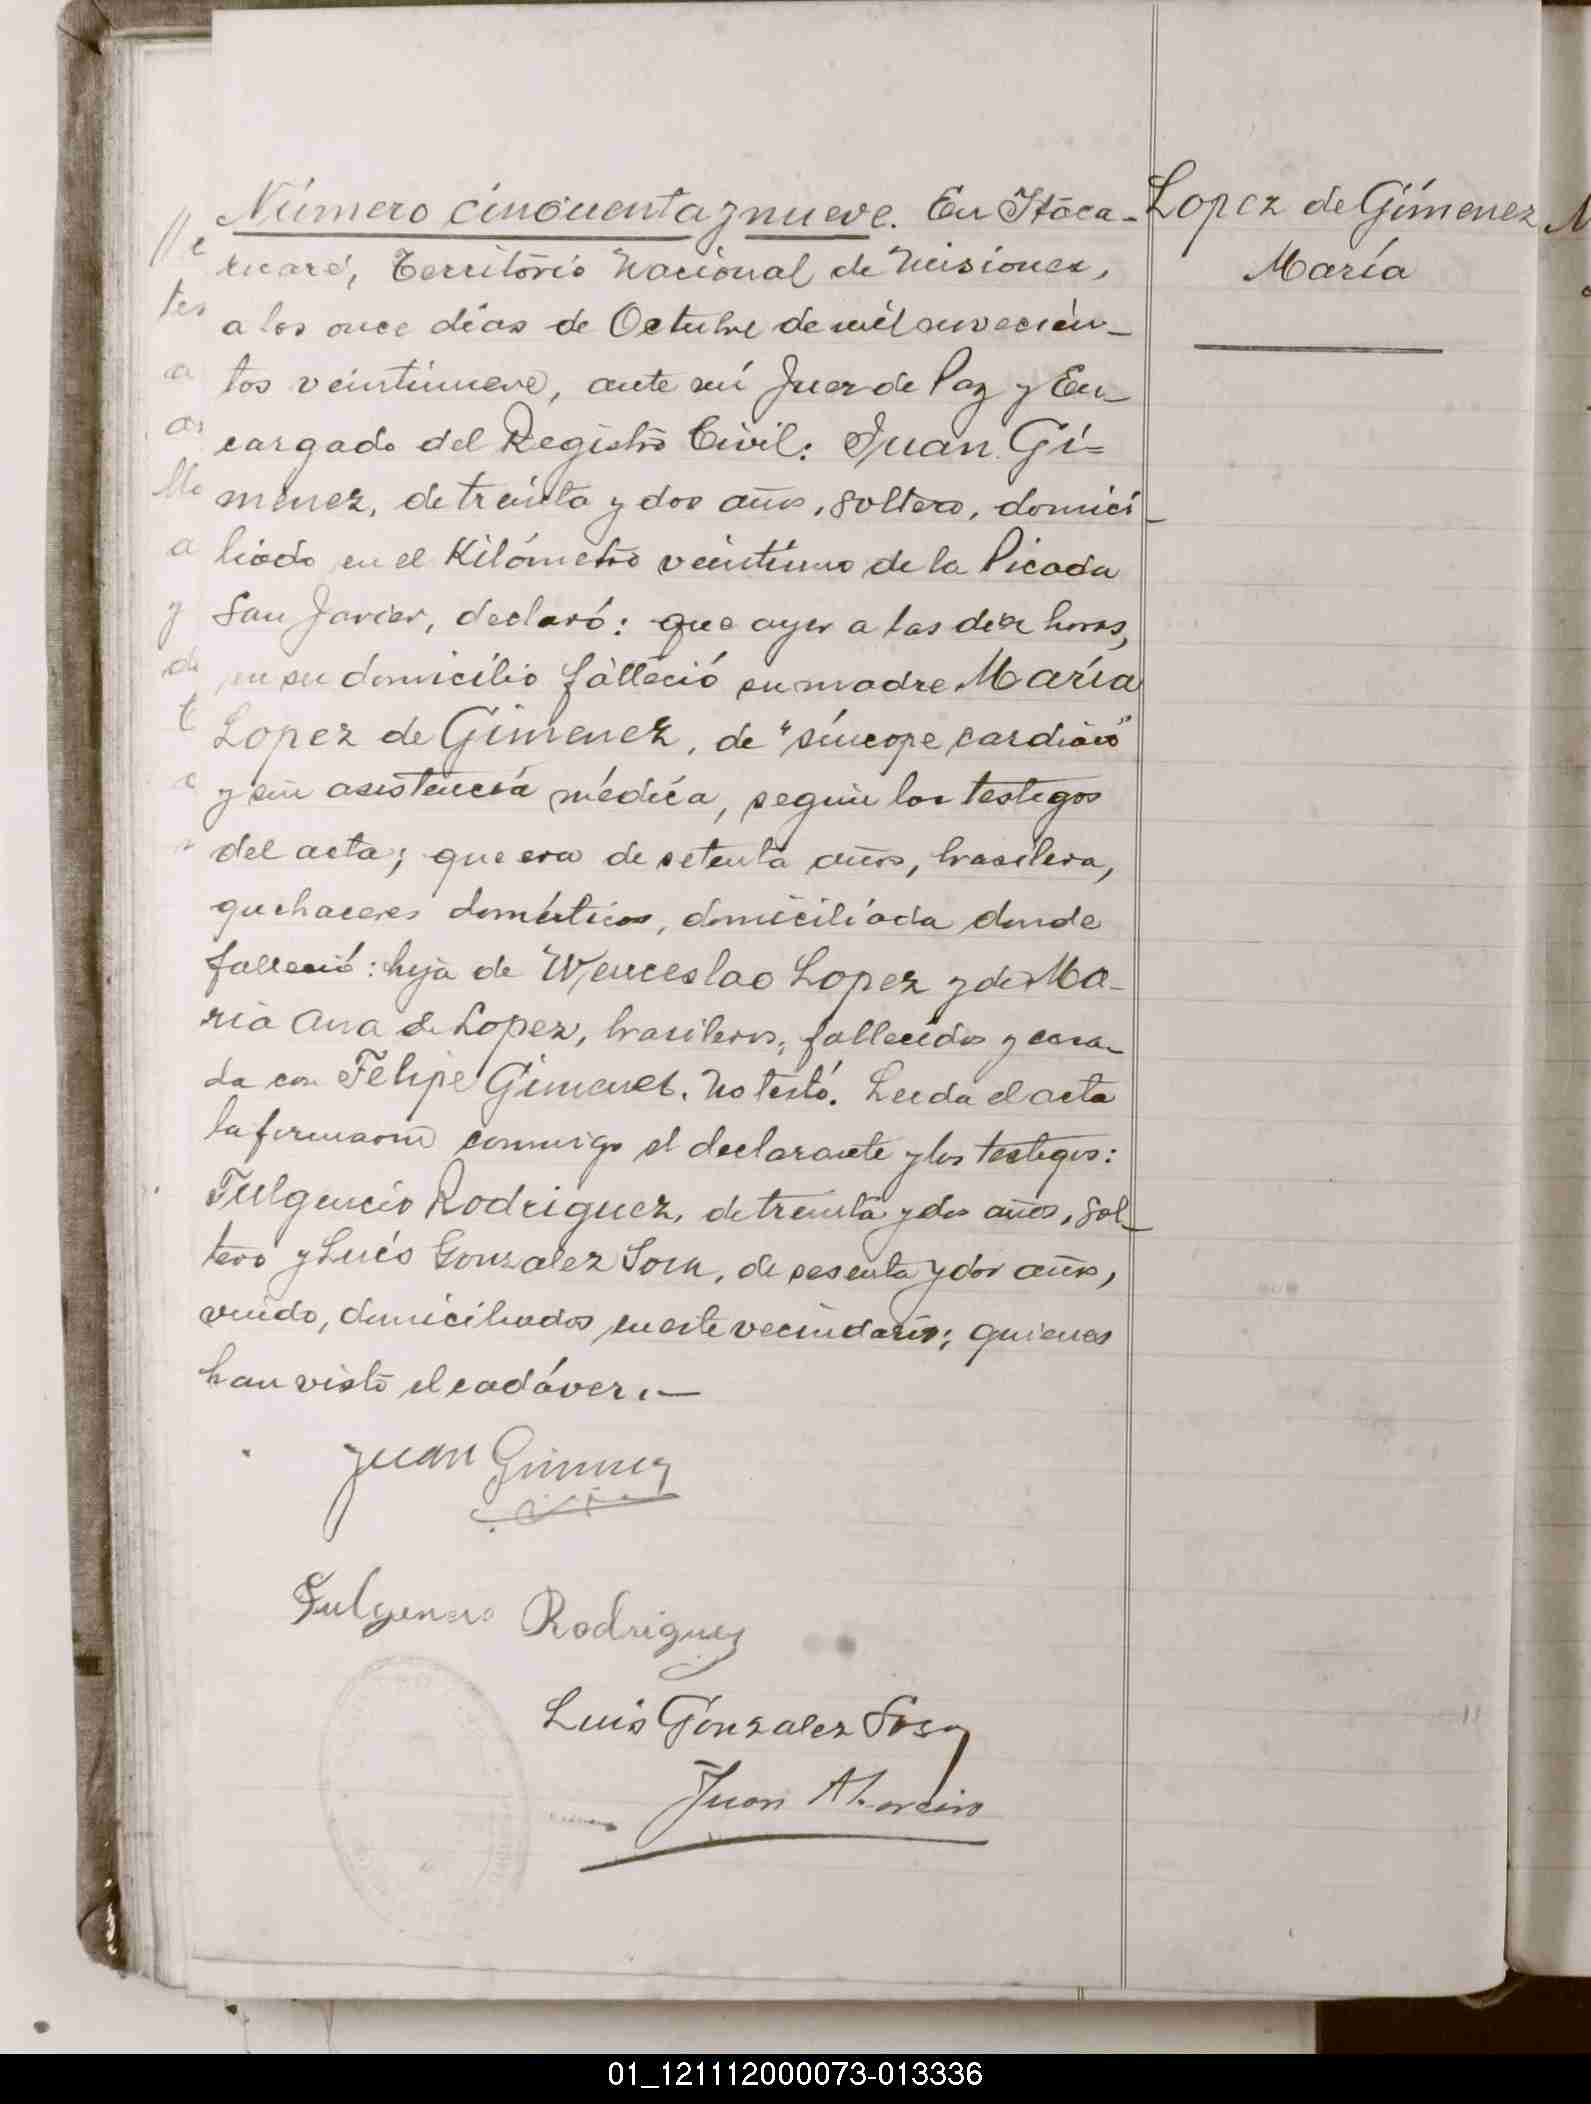 Número cincuenta y nueve. En Itaca-
ruaré, Territorio Nacional de Misiones,
a los once días de Octubre de mil novecien-
tos veintinueve, ante mí Juez de Paz y En-
cargado del Registro Civil: Juan Gi-
menez, de treinta y dos años, soltero, domici-
liado en el Kilómetro veintiuno de la Picada
San Javier, declaró: que ayer a las diez horas,
en su domicilio falleció su madre María
Lopez de Gimenez, de "síncope cardiaco"
y sin asistencia médica, según los testigos
del acta; que era de setenta años, brasilera,
quehaceres domésticos, domiciliada donde
falleció: hija de Wenceslao Lopez y de Ma-
ria Ana de Lopez, brasileros, fallecidos y casa-
da con Felipe Gimenez. No testó. Leida el acta
la firmaron conmigo el declarante y los testigos:
Fulgencio Rodriguez, de treinta y dos años, sol-
tero y Luis Gonzalez Sosa, de sesenta y dos años,
viudo, domiciliados en este vecindario; quienes
han visto el cadáver.—
Juan Gimenez
Fulgencio Rodriguez
Luis Gonzalez Sosa
Juan
Lopez de Gimenez
María
01_121112000073-013336